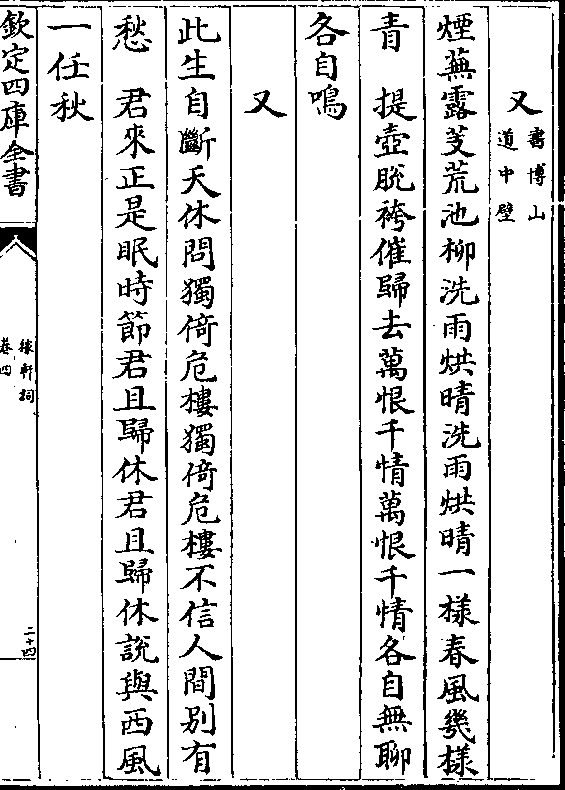 又書博山道中壁
煙蕪露芰荒池柳洗雨烘晴洗雨烘晴一樣春風幾樣
青　提壺脫袴催歸去萬恨千情萬恨千情各自無聊
各自鳴
又
此生自斷天休問獨倚危樓獨倚危樓不信人間別有
愁　君來正是眠時節君且歸休君且歸休說與西風
一任秋
欽定四庫全書
稼軒詞
卷四
二十四